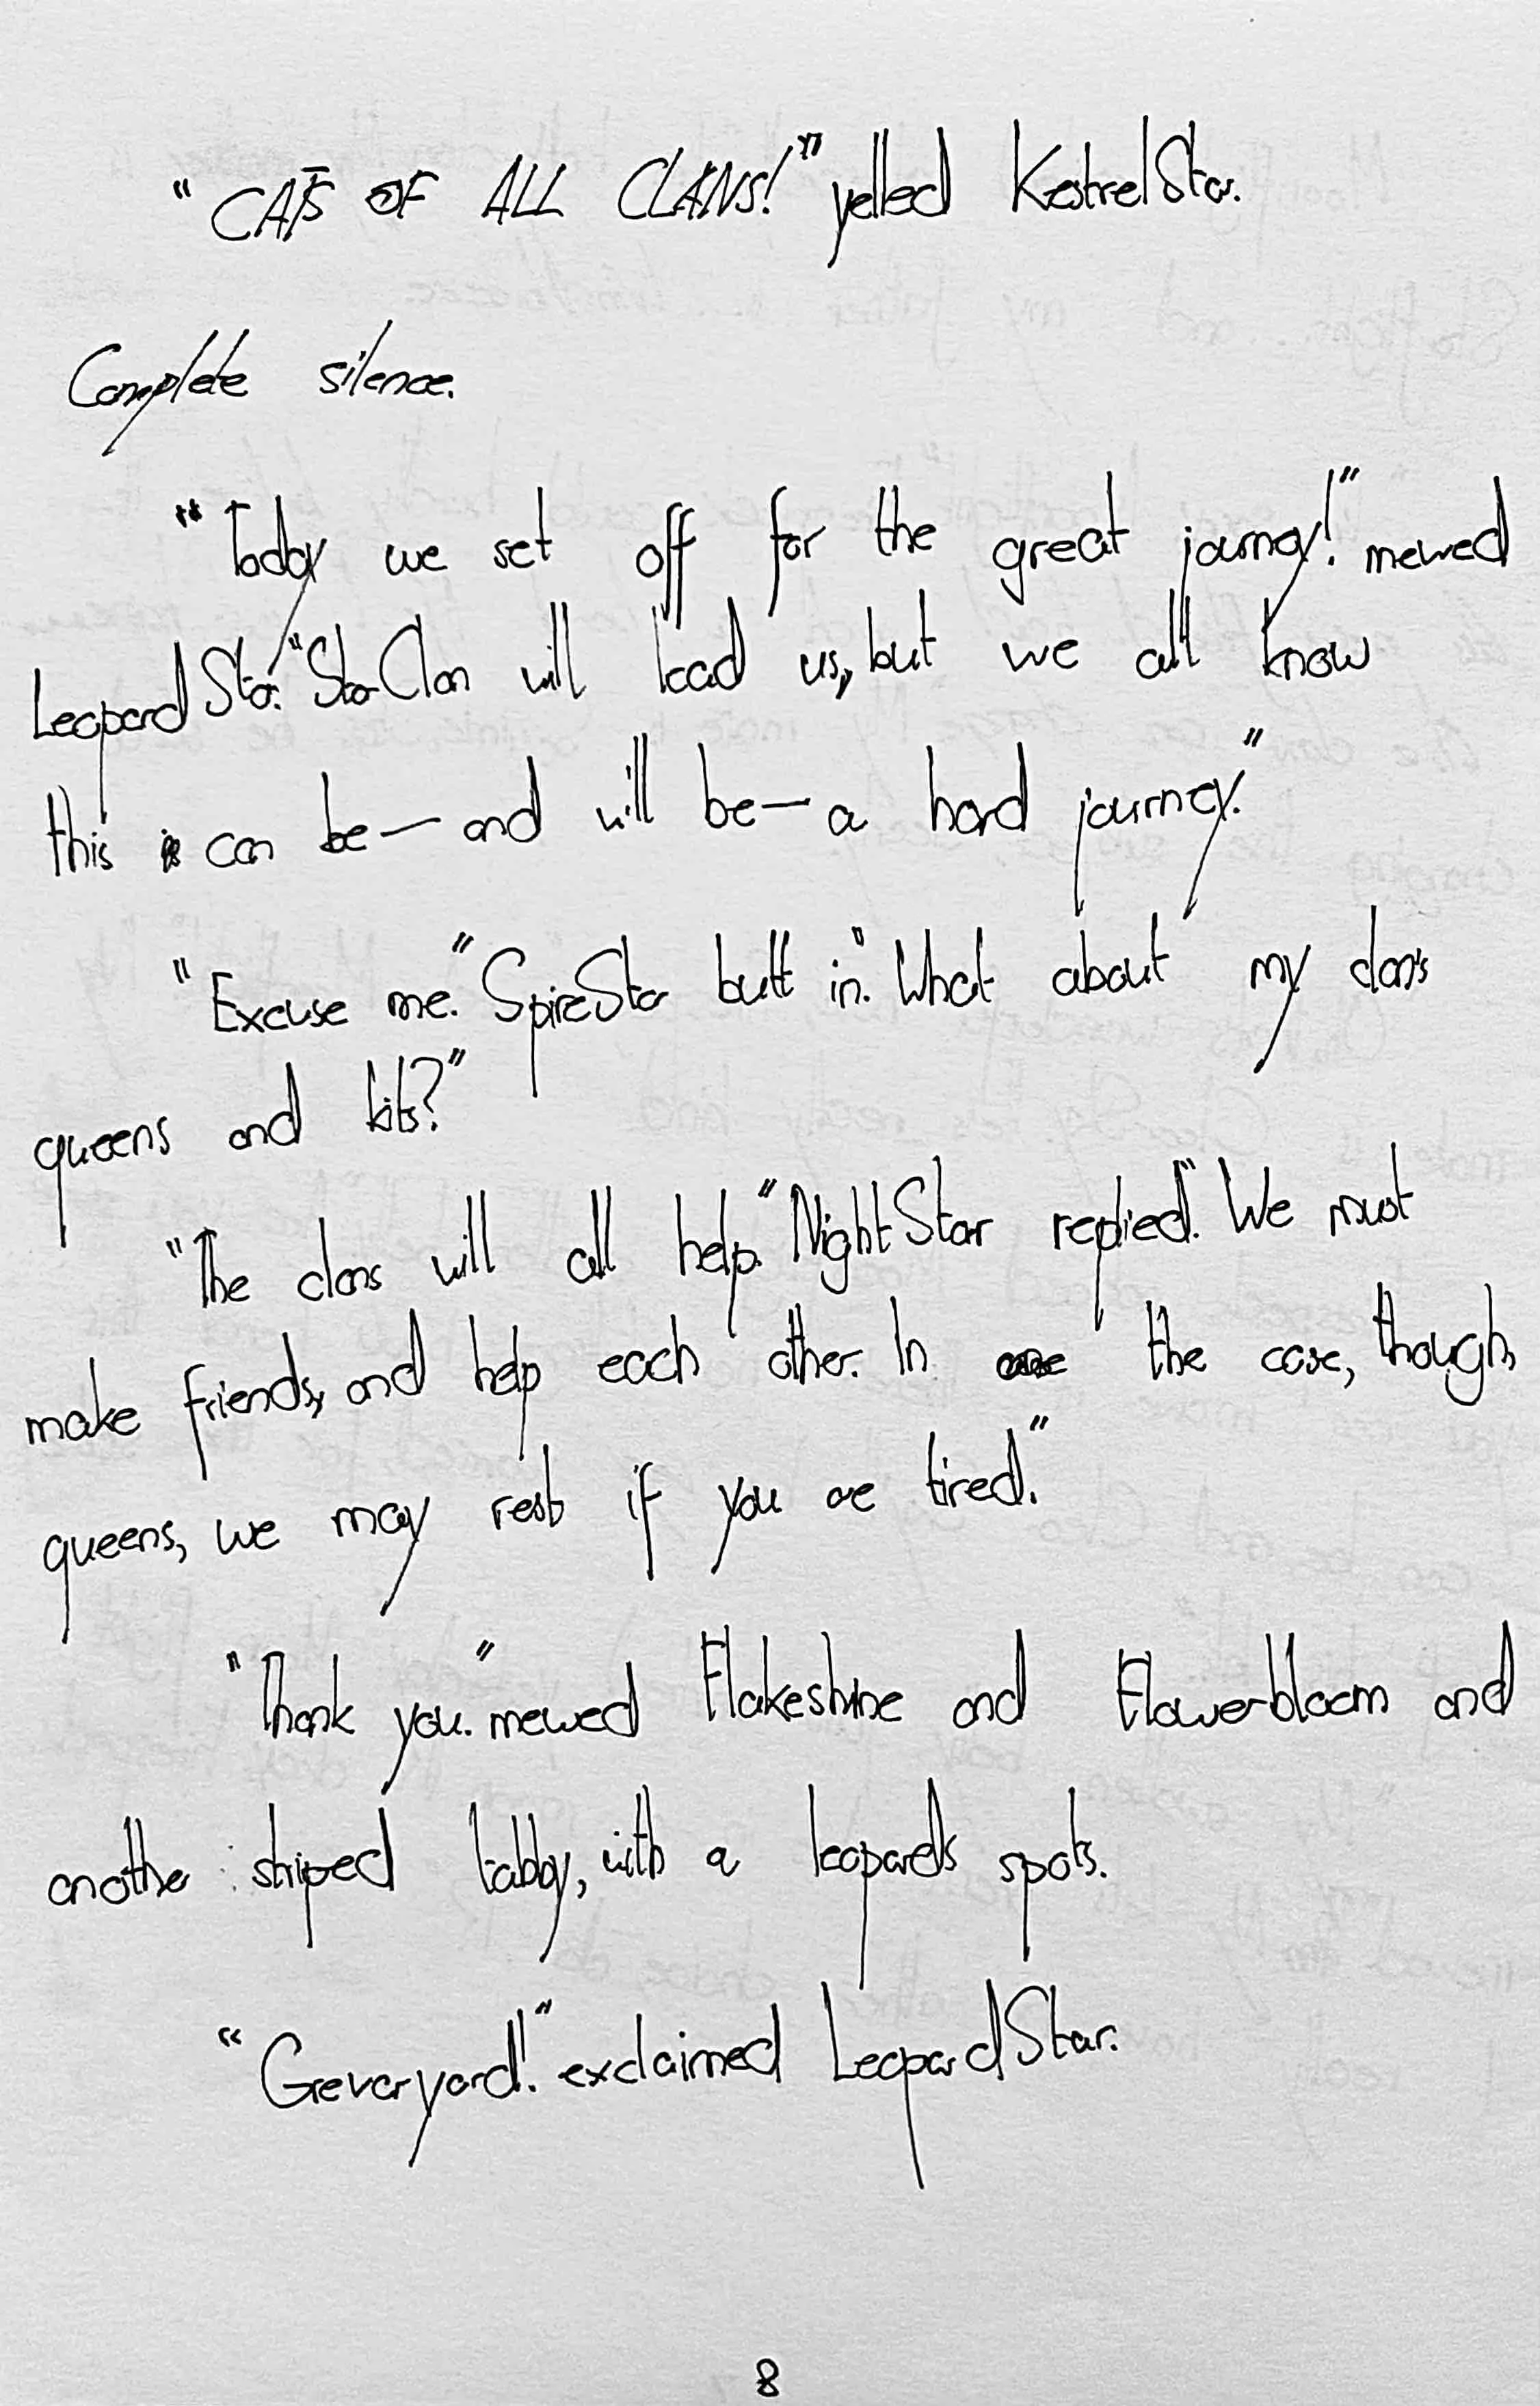 "CATS OF ALL CLANS!" yelled KestrelStar.
Complete silence.
"Today we set off for the great journey!" mewed
LeopardStar. "StarClan will lead us, but we all know
this can be—and will be—a hard journey."
"Excuse me." SpireStar butt in. "What about my clan's
queens and kits?"
"The clans will all help." NightStar replied. "We must
make friends, and help each other. In the case, though,
queens, we may rest if you are tired."
"Thank you." mewed Flakeshine and Flowerbloom and
another striped tabby, with a leopard's spots.
exclaimed LeopardStar.
8